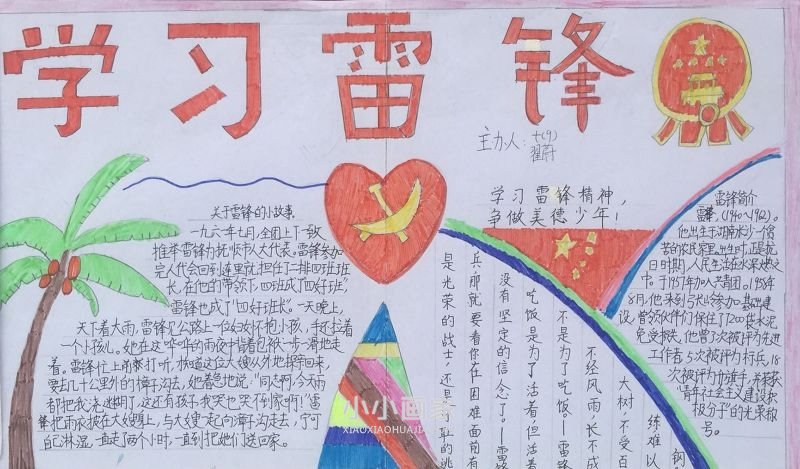 学习雷锋
主办人:七(9)
翟蔚
关于雷锋的小故事
一九六一年七月,全团上下一致
推举雷锋为抚顺市人大代表。雷锋参加
完人代会回到连里就担任二排四班班
长,在他的带领下,四班成了“四好班”,
雷锋也成了“四好班长”。一天晚上,
天下着大雨,雷锋见公路上一位妇女怀抱小孩,手还拉着
一个小孩儿。她在这哗哗的雨夜中背着包袱一步一滑地走
着。雷锋忙上前打听,知道这位大嫂从外地探亲回来,
要去几十里外的樟子沟去,她着急地说:“同志啊,今天雨
都把我浇迷糊了,这还有孩子,我哭也哭不到家啊!”雷
锋把雨衣披在大嫂身上,与大嫂一起向樟子沟走去,宁可
自己淋湿,一直走了两个小时,一直到把她们送回家。
小小画家
XIAOXIAOHUAJIA
学习雷锋精神,
争做美德少年!
雷锋简介
雷锋,(1940~1962)。
他出生于湖南长沙一个贫
苦的农民家里。出生时,正是抗
日时期,人民生活在水深火热之
中。于1957年加入共青团。1958年
8月,他来到弓长岭参加基础建
设,曾领伙伴们保住了7200袋水泥
免受损失,他曾3次被评为先进
工作者,5次被评为标兵,18
次被评为红旗手,并荣获
“青年社会主义建设积
极分子”的光荣称
号。
钢
练难以
大树,不受百
不经风雨,长不成
不是为了吃饭。——雷锋
吃饭是为了活着,但活着
没有坚定的信念了。——雷锋
兵那就要看你在困难面前有
是光荣的战士,还是可耻的逃